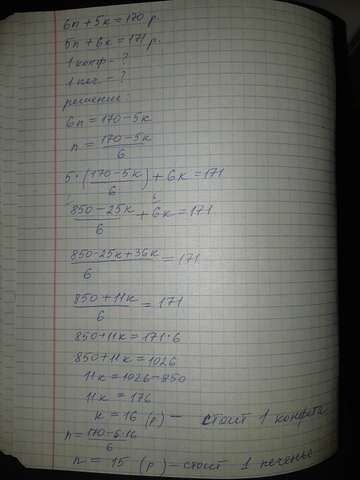 6п + 5к = 170 р.
5п + 6к = 171 р.
1 конф = ?
1 печ = ?
решение:
6п = 170 - 5к
п = (170 - 5к)/6
5 · ((170 - 5к)/6) + 6к = 171
(850 - 25к)/6 + 6к = 171
(850 - 25к + 36к)/6 = 171
(850 + 11к)/6 = 171
850 + 11к = 171 · 6
850 + 11к = 1026
11к = 1026 - 850
11к = 176
к = 16 (р) — стоит 1 конфета
п = (170 - 5·16)/6
п = 15 (р) - стоит 1 печенье